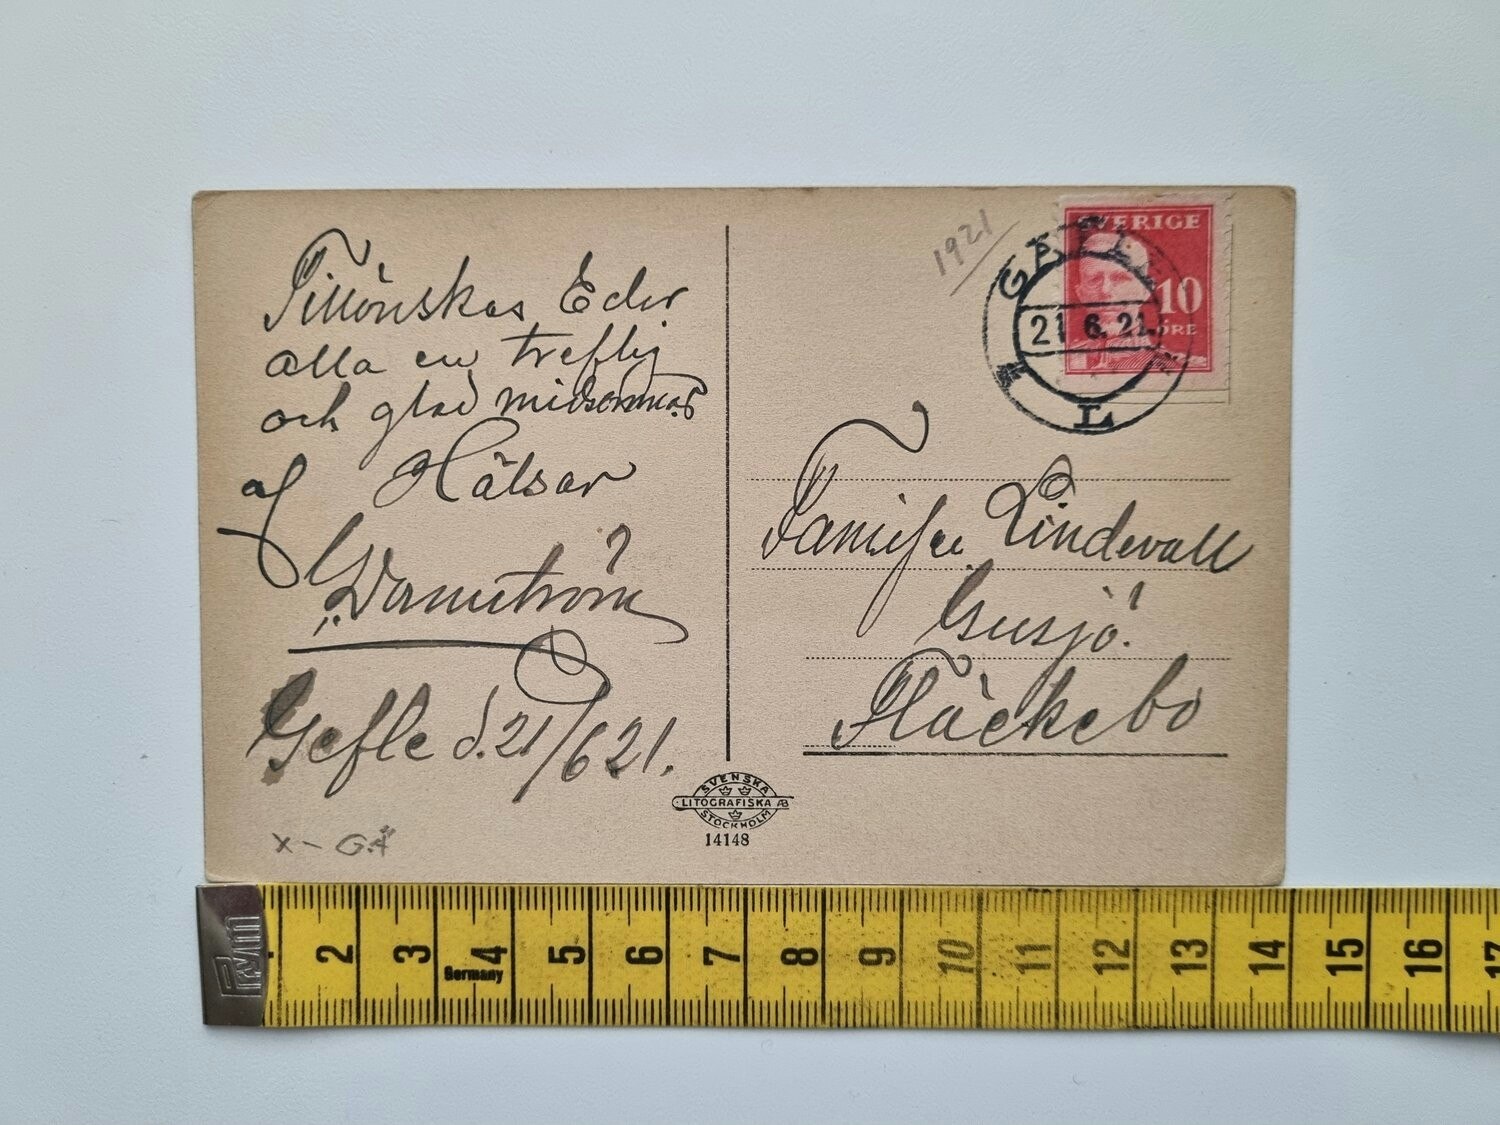 Tillönskas Eder
alla en treflig
och glad midsommar
af Hälsar
Gefle d. 21/6 21.
x - GÄ
1921
SVERIGE
10
ÖRE
GÄVLE
21 6. 21.
L
Familjen Lindevall
Gusjö.
Fläckebo
SVENSKA
LITOGRAFISKA AB
STOCKHOLM
14148
Prym
2 3 4 5 6 7 8 9 10 11 12 13 14 15 16 17
Germany